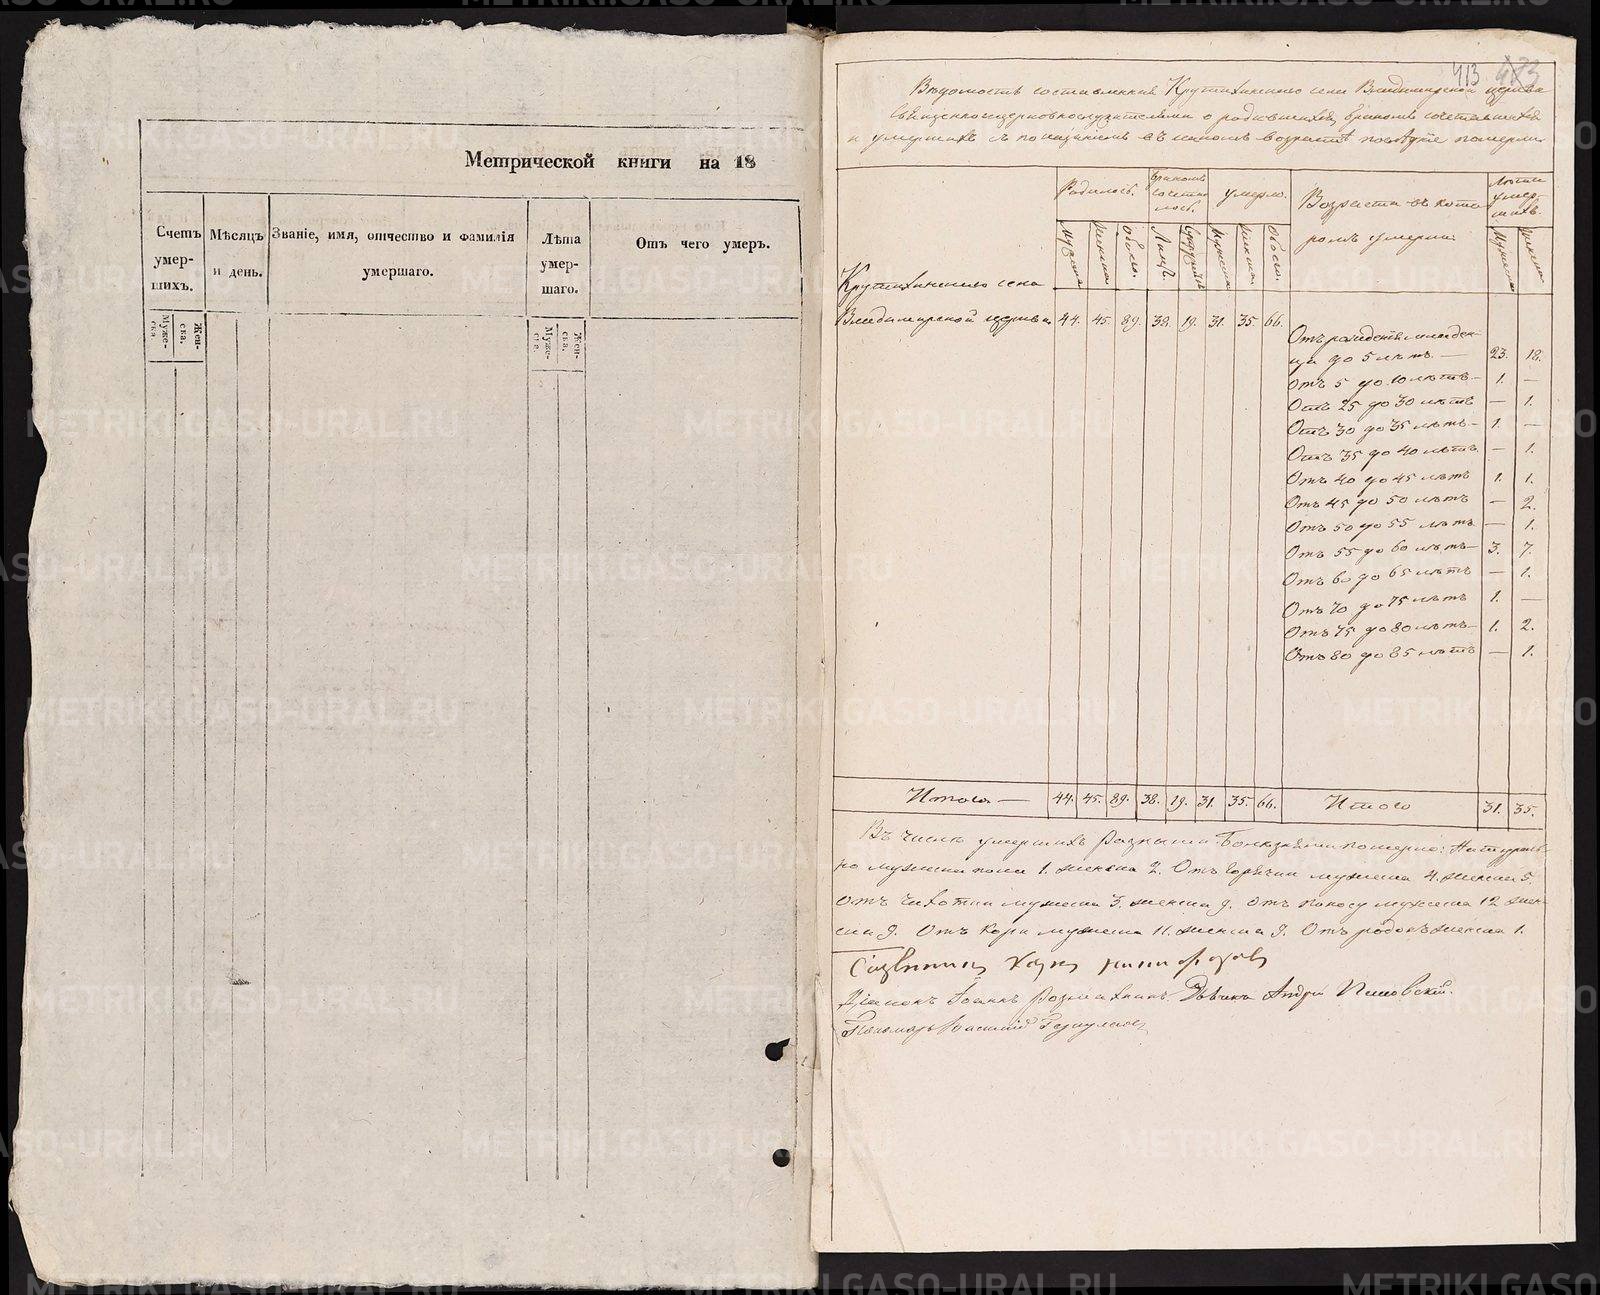 Метрической книги на 18
Счетъ умер- шихъ.
Мѣсяцъ и день.
Званіе, имя, отчество и фамилія умершаго.
Лѣта умер- шаго.
Отъ чего умеръ.
Муже- ска
Жен- ска.
Муже- ска.
Жен- ска.
413
Вѣдомость составленная Крутихинскаго села Владимирской церкви
священноцерковнослужителями о родившихся, бракомъ сочетавшихся
и умершихъ съ показаніемъ въ какомъ возрастѣ
Родилось.
бракомъ сочета- лось.
умерло.
Возраста въ кото-
ромъ умерли.
Лѣта умер- шихъ.
мужеска женска обоего.
мужеска женска обоего.
мужеска женска
Крутихинскаго села
Владимирской церкви 44. 45. 89. 38. 19. 31. 35. 66.
Отъ рожденія младен-
ца до 5 лѣтъ — 23. 18.
Отъ 5 до 10 лѣтъ — 1. —
Отъ 25 до 30 лѣтъ — 1.
Отъ 30 до 35 лѣтъ — 1. —
Отъ 35 до 40 лѣтъ — 1.
Отъ 40 до 45 лѣтъ 1. 1.
Отъ 45 до 50 лѣтъ — 2.
Отъ 50 до 55 лѣтъ — 1.
Отъ 55 до 60 лѣтъ — 3. 7.
Отъ 60 до 65 лѣтъ — 1.
Отъ 70 до 75 лѣтъ 1. —
Отъ 75 до 80 лѣтъ — 1. 2.
Отъ 80 до 85 лѣтъ — 1.
Итого — 44. 45. 89. 38. 19. 31. 35. 66. Итого 31. 35.
Въ числѣ умершихъ разными болѣзнями померло: Натураль-
но мужеска пола 1. женска 2. Отъ горячки мужеска 4. женска 5.
отъ чихотки мужеска 3. женска 9. отъ поносу мужеска 12 жен-
ска 9. Отъ кори мужеска 11. женска 9. Отъ родовъ женска 1.
Діаконъ Іоаннъ Андрей
Пономарь Василій
METRIKI.GASO-URAL.RU